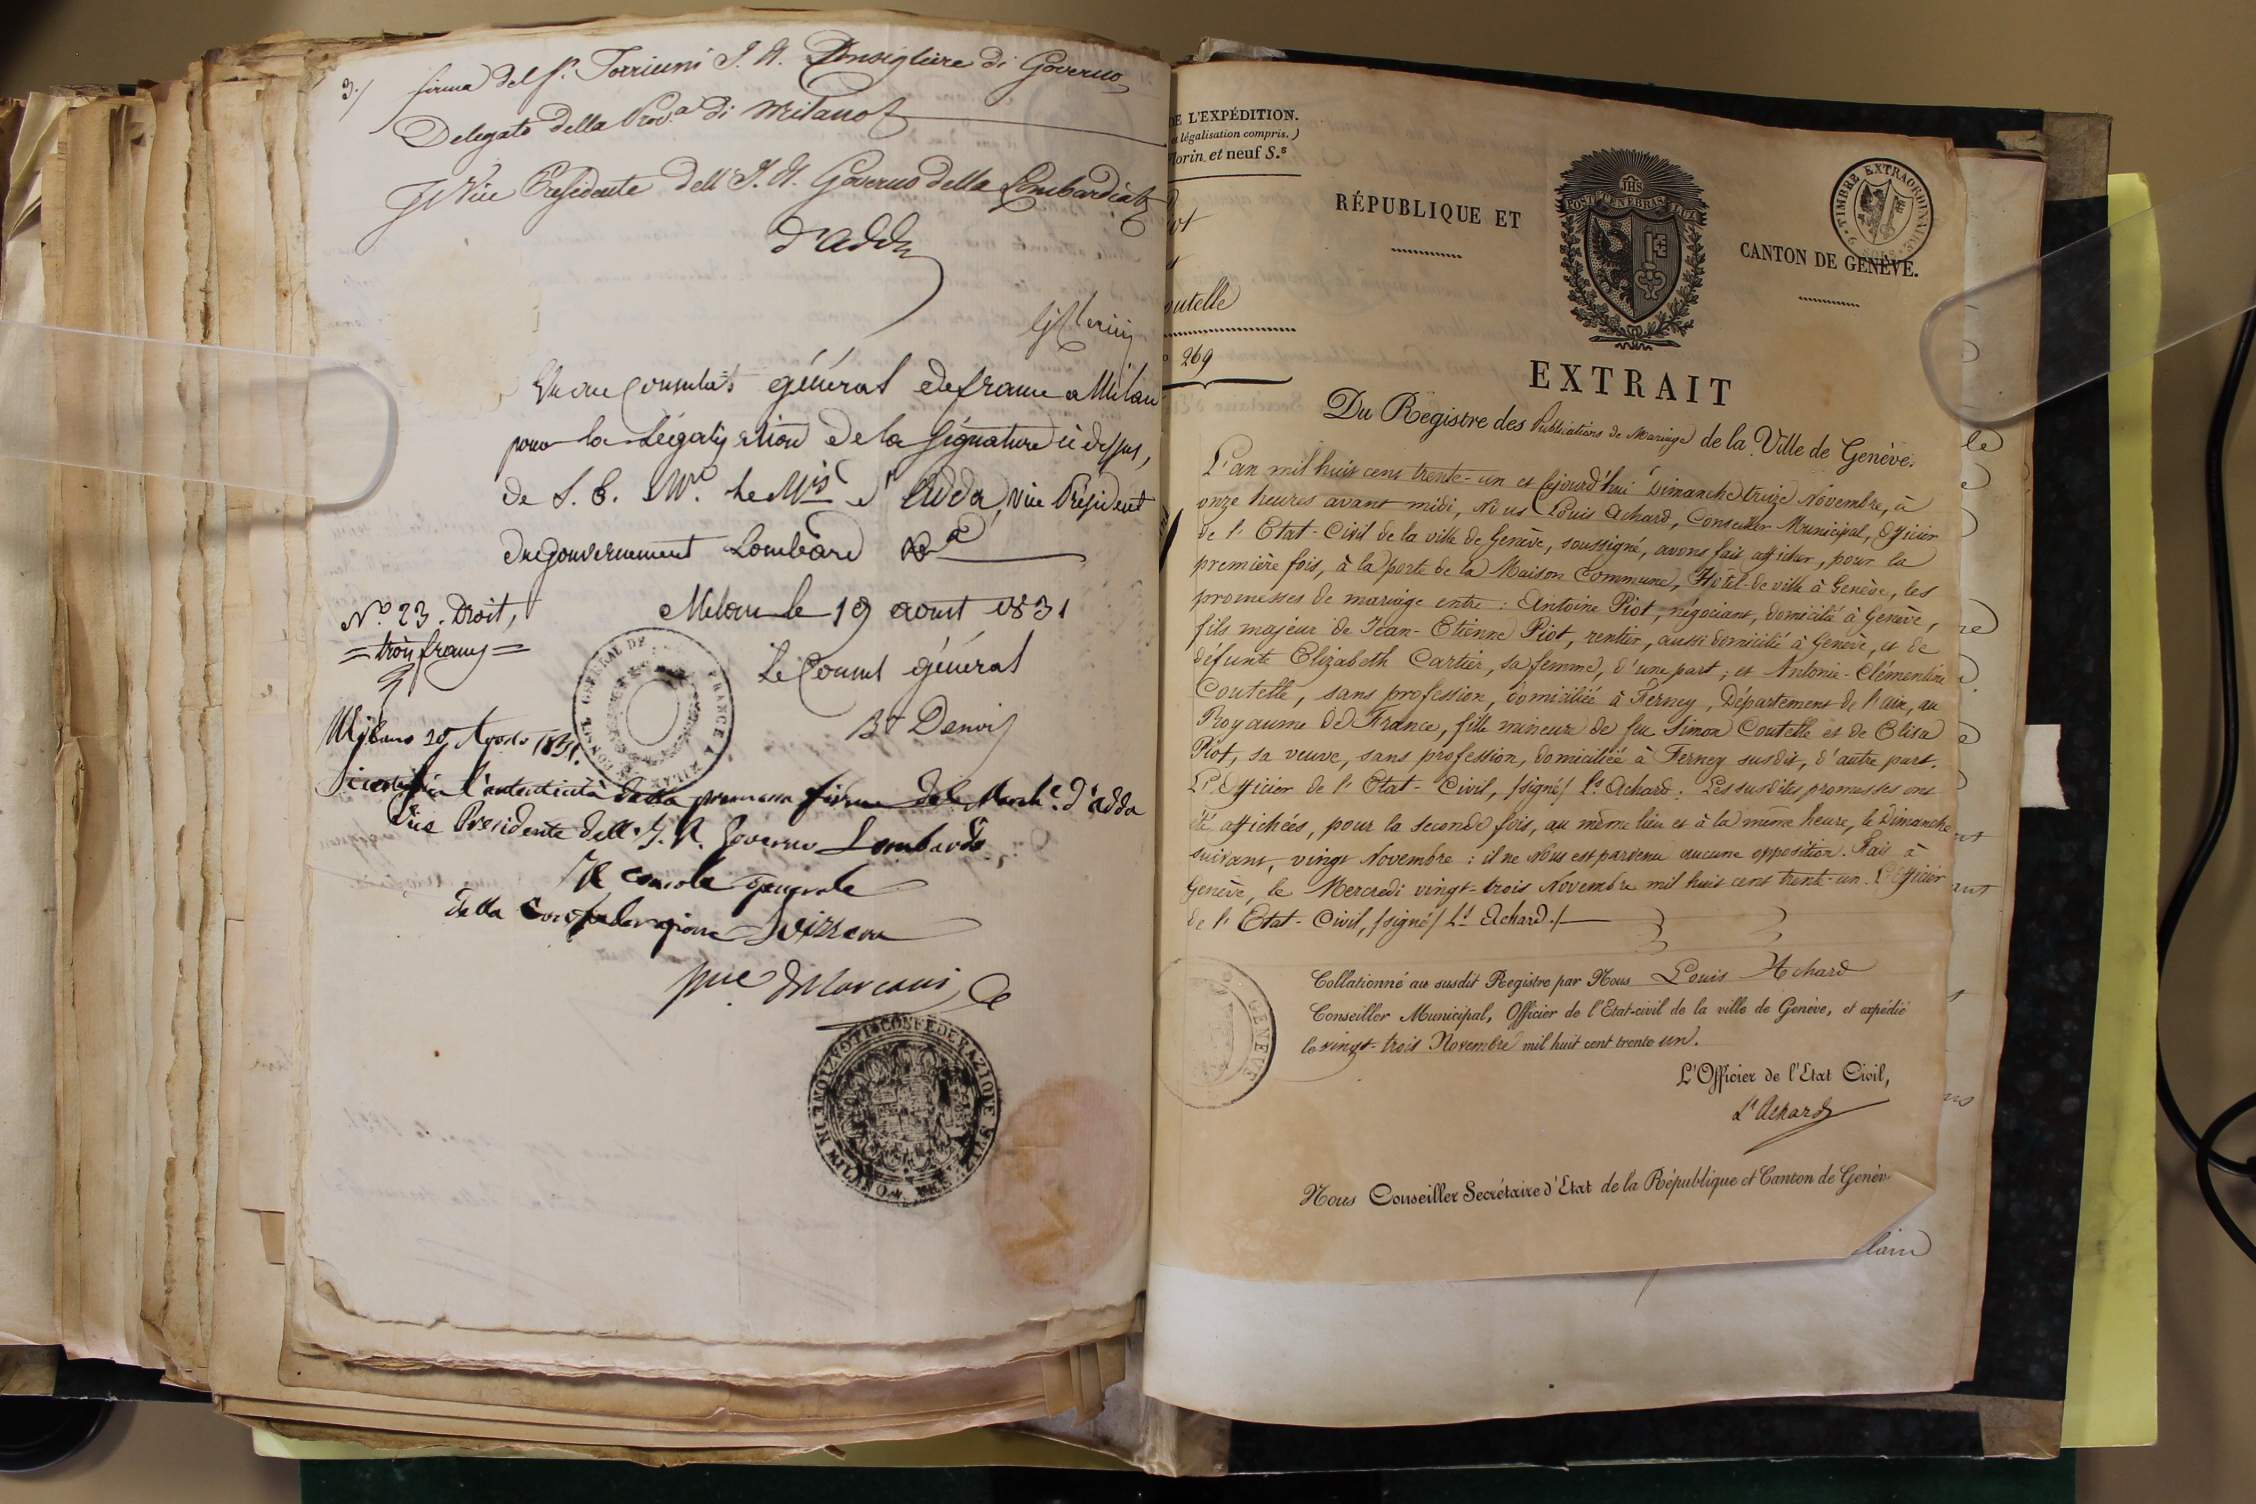 3./
firma del Sr. Torriceni I. R. Consigliere di Governo
Delegato della Prov.a di Milano
Il Vice Presidente dell' I. R. Governo della Lombardia
d'Adda
Vu au Consulat général de france a Milan
pour la Légalisation de la Signature ci dessus,
de S. E. Mr. le Mis d'Adda, vice Président
du gouvernement Lombard
N.o 23. Droit,
= trois francs =
Milan le 19 aout 1831
Le Consul général
Bn Denois
CONSULAT GÉNÉRAL DE FRANCE A MILAN
Milano 20 Agosto 1831.
Si certifica l'autenticità della premessa firma del March.e d'Adda
Vice Presidente dell' I. R. Governo Lombardo
Il Console Generale
della Confederazione Svizzera
CONFEDERAZIONE SVIZZERA
DE L'EXPÉDITION.
légalisation compris.)
florin et neuf S.s
outelle
269
RÉPUBLIQUE ET
CANTON DE GENÈVE.
IHS
POST TENEBRAS LUX
TIMBRE EXTRAORDINAIRE
EXTRAIT
Du Registre des Publications de Mariage de la Ville de Genève.
L'an mil huit cent trente-un et cejourd'hui Dimanche treize Novembre, à
onze heures avant midi, Nous Louis Achard, Conseiller Municipal, Officier
de l'Etat-Civil de la ville de Genève, soussigné, avons fait afficher, pour la
première fois, à la porte de la Maison Commune, Hôtel-de-ville à Genève, les
promesses de mariage entre : Antoine Piot, négociant, domicilié à Genève,
fils majeur de Jean-Etienne Piot, rentier, aussi domicilié à Genève, et de
défunte Elizabeth Cartier, sa femme, d'une part ; et Antonie-Clémentine
Coutelle, sans profession, domiciliée à Ferney, Département de l'Ain, au
Royaume de France, fille mineure de feu Simon Coutelle et de Elisa
Piot, sa veuve, sans profession, domiciliée à Ferney susdit, d'autre part.
L'Officier de l'Etat-Civil, /signé/ Ls Achard. Les susdites promesses ont
été affichées, pour la seconde fois, au même lieu et à la même heure, le Dimanche
suivant, vingt Novembre : il ne Nous est parvenu aucune opposition. Fait à
Genève, le Mercredi vingt-trois Novembre mil huit cent trente-un. L'Officier
de l'Etat-Civil, /signé/ Ls Achard./.
GENÈVE
Collationné au susdit Registre par Nous Louis Achard
Conseiller Municipal, Officier de l'Etat-civil de la ville de Genève, et expédié
le vingt-trois Novembre mil huit cent trente un.
L'Officier de l'Etat Civil,
Ls Achard
Nous Conseiller Secrétaire d'Etat de la République et Canton de Genèv